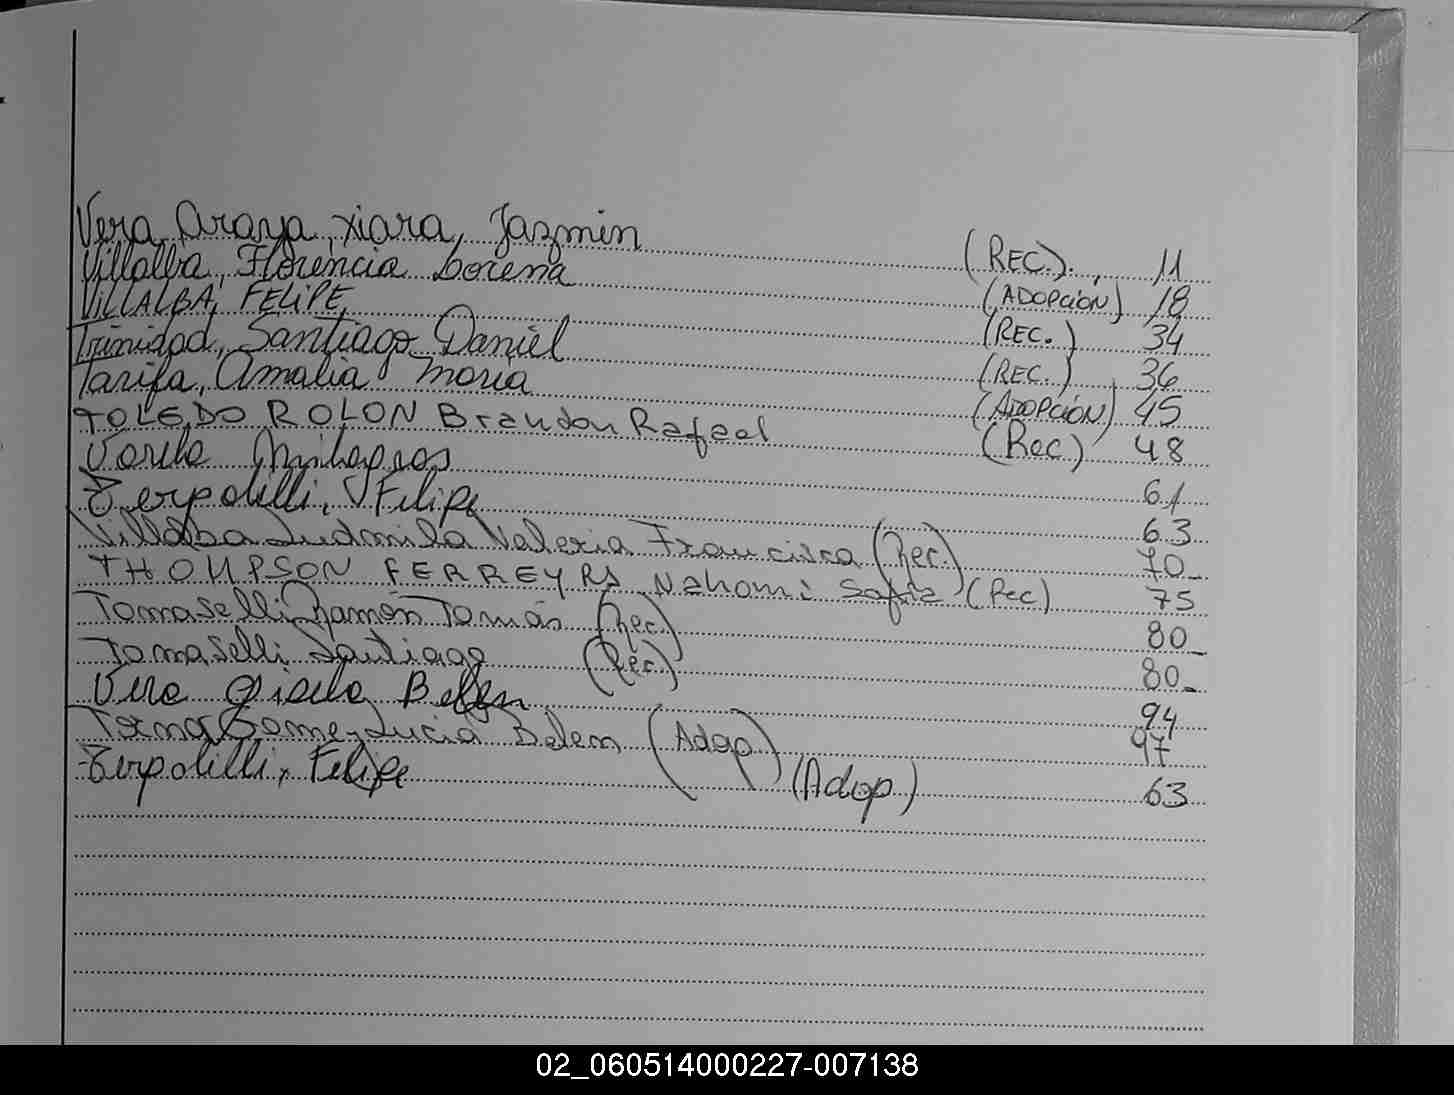 Vera Araya, Xiara, Jazmin (REC.). 11
Villalba, Florencia Lorena (ADOPCIÓN) 18
VILLALBA, FELIPE (REC.) 34
Trinidad, Santiago Daniel (REC.) 36
Tarifa, Amalia Maria (ADOPCIÓN) 45
TOLEDO ROLON Brandon Rafael (Rec) 48
Varela Milagros 61
Terpolilli, Felipe 63
Villalba Ludmila Valeria Francisca (Rec.) 70
THOMPSON FERREYRA Nahomi Sofia (Rec) 75
Tomaselli Ramón Tomás (Rec.) 80
Tomaselli Santiago (Rec.) 80
Vera Gisela Belen 94
Gomez Lucia Belem (Adop) 97
Terpolilli, Felipe (Adop) 63
02_060514000227-007138